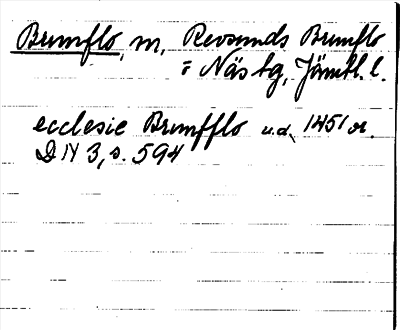 Brunflo, m, Revsunds Brunflo
= Näs tg, Jämtl. l.
ecclesie Brunfflo u.d. 1451 or.
DN 3, s. 594